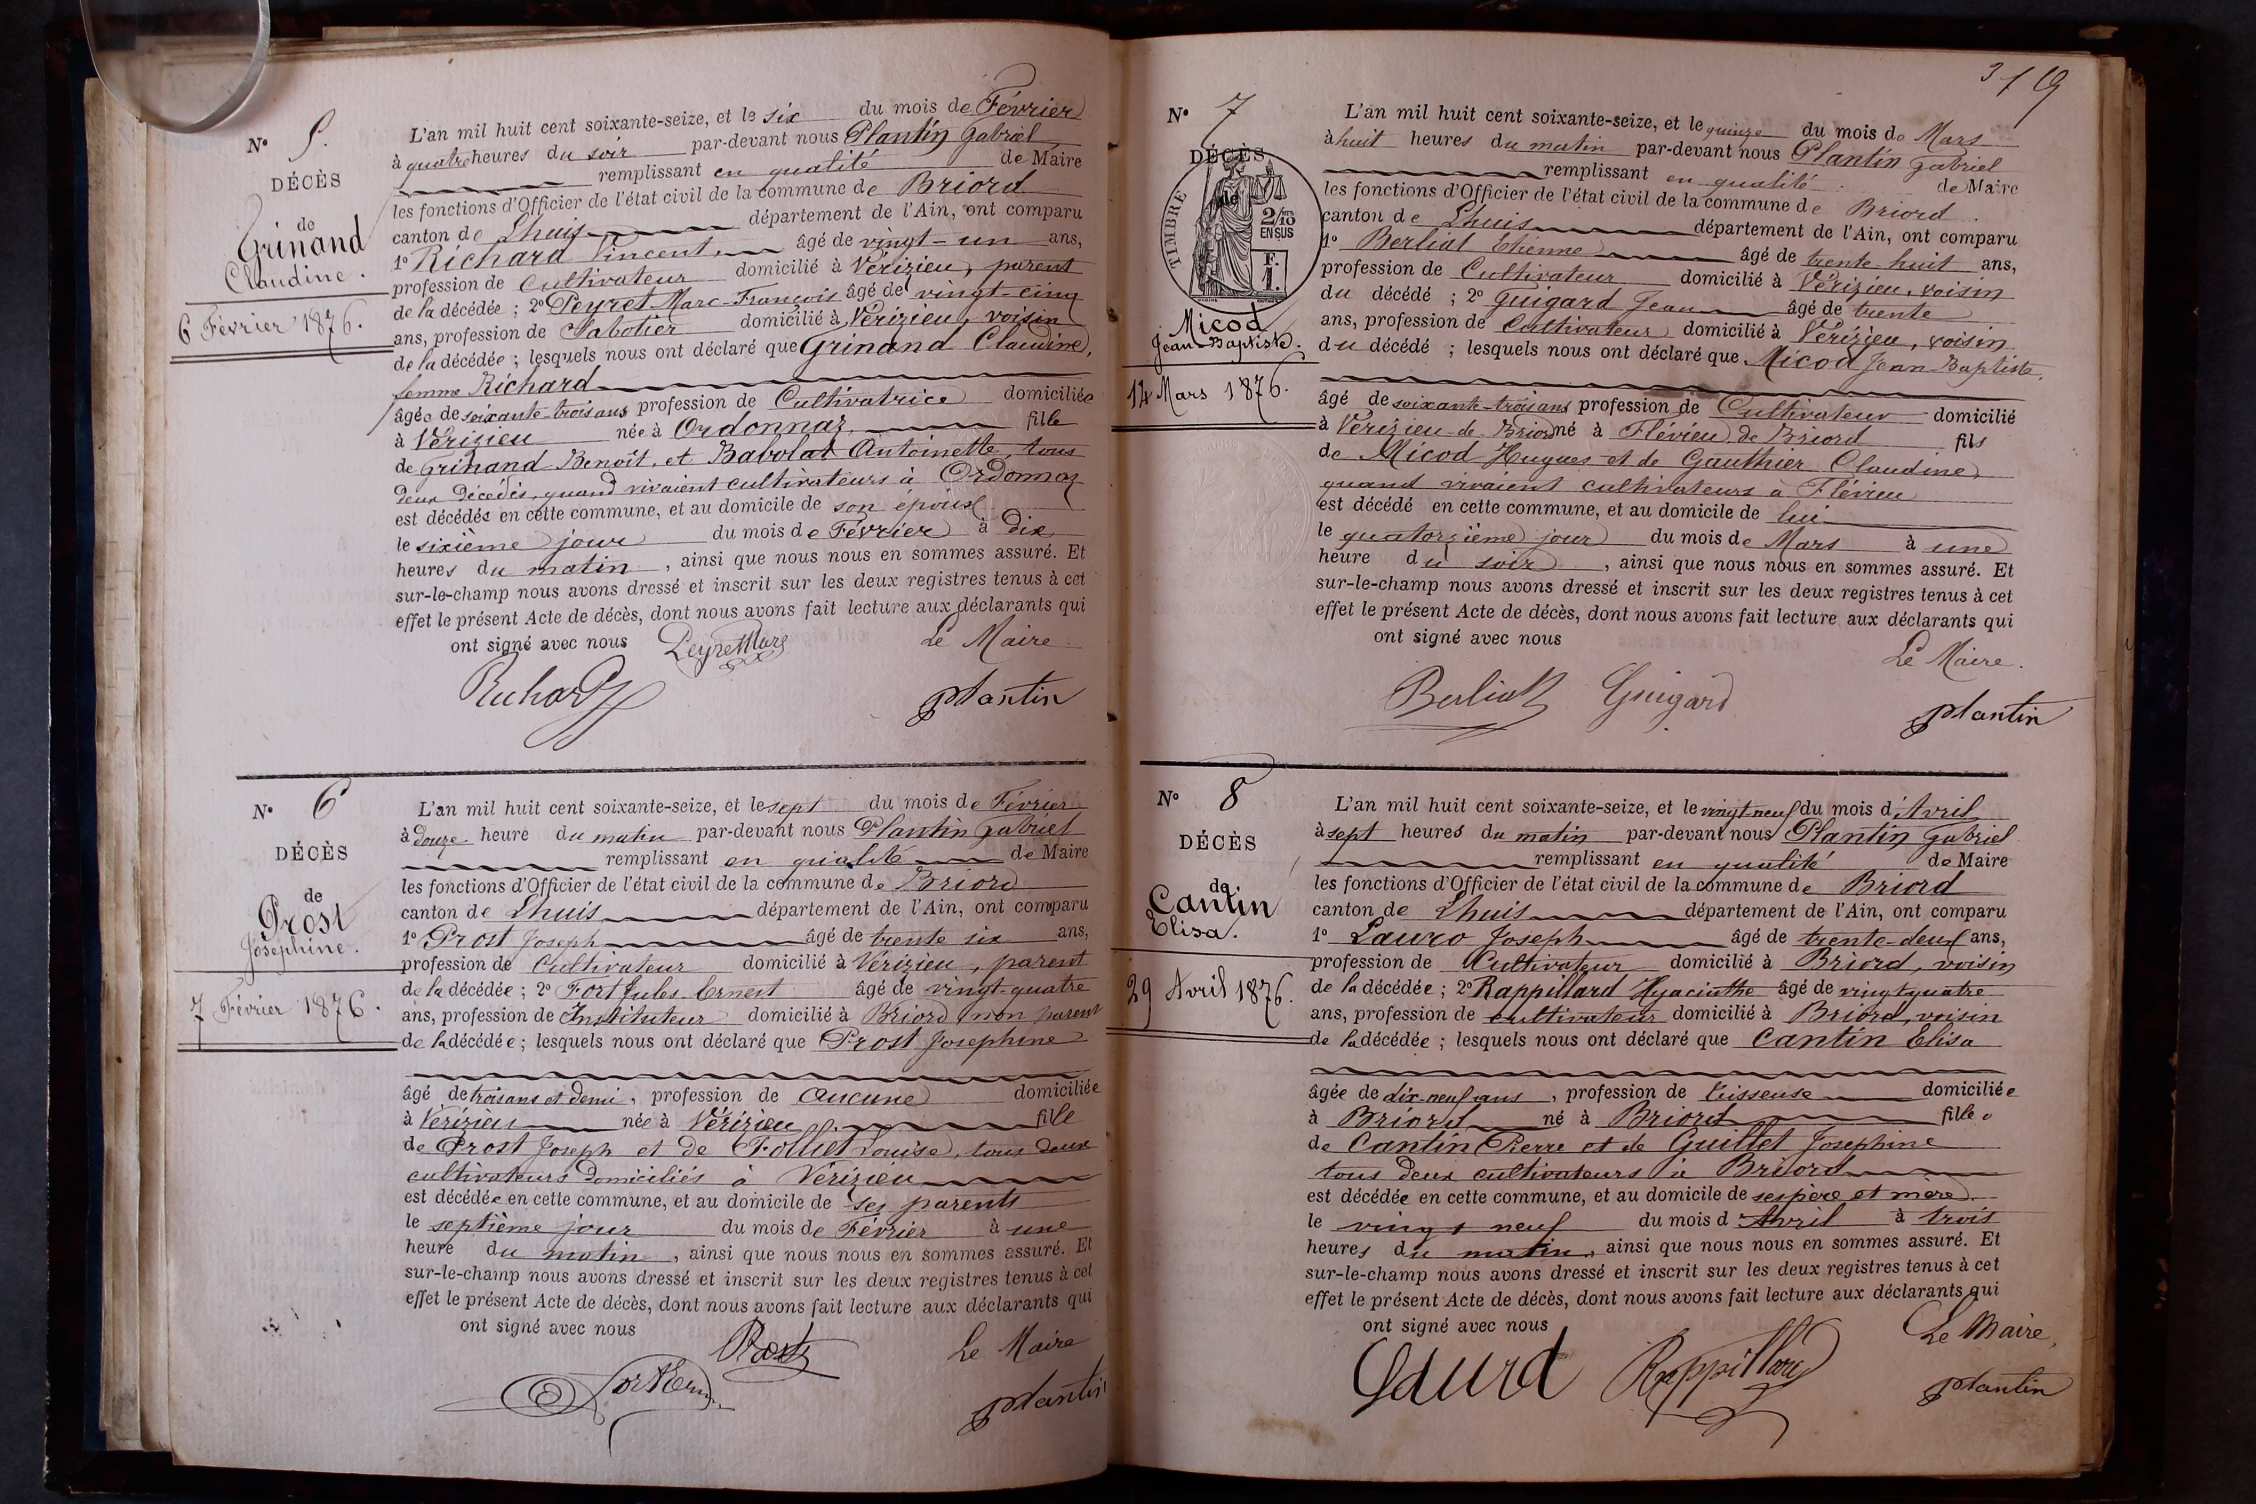 N° 5.
DÉCÈS
de
Grinand
Claudine.
6 Février 1876.
L'an mil huit cent soixante-seize, et le six du mois de Février
à quatre heures du soir par-devant nous Plantin Gabriel
remplissant en qualité de Maire
les fonctions d'Officier de l'état civil de la commune de Briord
canton de Lhuis département de l'Ain, ont comparu
1° Richard Vincent âgé de vingt-un ans,
profession de Cultivateur domicilié à Vérizieu, parent
de la décédée ; 2° Peyret Marc-François âgé de vingt-cinq
ans, profession de Sabotier domicilié à Vérizieu, voisin
de la décédée ; lesquels nous ont déclaré que Grinand Claudine,
femme Richard
âgée de soixante-trois ans profession de Cultivatrice domiciliée
à Vérizieu née à Ordonnaz fille
de Grinand Benoît, et Babolat Antoinette, tous
deux décédés, quand vivaient cultivateurs à Ordonnaz
est décédée en cette commune, et au domicile de son époux
le sixième jour du mois de Février à dix
heures du matin, ainsi que nous nous en sommes assuré. Et
sur-le-champ nous avons dressé et inscrit sur les deux registres tenus à cet
effet le présent Acte de décès, dont nous avons fait lecture aux déclarants qui
ont signé avec nous Peyret Marc Le Maire
Richard Plantin
N° 6
DÉCÈS
de
Prost
Joséphine.
7 Février 1876.
L'an mil huit cent soixante-seize, et le sept du mois de Février
à douze heure du matin par-devant nous Plantin Gabriel
remplissant en qualité de Maire
les fonctions d'Officier de l'état civil de la commune de Briord
canton de Lhuis département de l'Ain, ont comparu
1° Prost Joseph âgé de trente six ans,
profession de Cultivateur domicilié à Vérizieu, parent
de la décédée ; 2° Fort Jules Ernest âgé de vingt-quatre
ans, profession de Instituteur domicilié à Briord non parent
de la décédée ; lesquels nous ont déclaré que Prost Josephine
âgé de trois ans et demi, profession de aucune domiciliée
à Vérizieu née à Vérizieu fille
de Prost Joseph et de Louise, tous deux
cultivateurs domiciliés à Vérizieu
est décédée en cette commune, et au domicile de ses parents
le septième jour du mois de Février à une
heure du matin, ainsi que nous nous en sommes assuré. Et
sur-le-champ nous avons dressé et inscrit sur les deux registres tenus à cet
effet le présent Acte de décès, dont nous avons fait lecture aux déclarants qui
ont signé avec nous Prost Le Maire
Plantin
3/19
N° 7
DÉCÈS
de
TIMBRE
2/10 EN SUS
F. 1.
Micod
Jean Baptiste.
14 Mars 1876.
L'an mil huit cent soixante-seize, et le quinze du mois de Mars
à huit heures du matin par-devant nous Plantin Gabriel
remplissant en qualité de Maire
les fonctions d'Officier de l'état civil de la commune de Briord
canton de Lhuis département de l'Ain, ont comparu
1° Berliat Etienne âgé de trente-huit ans,
profession de Cultivateur domicilié à Vérizieu, voisin
du décédé ; 2° Guigard Jean âgé de trente
ans, profession de Cultivateur domicilié à Vérizieu, voisin
du décédé ; lesquels nous ont déclaré que Micod Jean Baptiste,
âgé de soixante-trois ans profession de Cultivateur domicilié
à Vérizieu de Briord né à Flévieu de Briord fils
de Micod Hugues et de Gauthier Claudine,
quand vivaient cultivateurs à Flévieu
est décédé en cette commune, et au domicile de lui
le quatorzième jour du mois de Mars à une
heure du soir, ainsi que nous nous en sommes assuré. Et
sur-le-champ nous avons dressé et inscrit sur les deux registres tenus à cet
effet le présent Acte de décès, dont nous avons fait lecture aux déclarants qui
ont signé avec nous Le Maire.
Berliat Guigard Plantin
N° 8
DÉCÈS
de
Cantin
Elisa.
29 Avril 1876.
L'an mil huit cent soixante-seize, et le vingt neuf du mois d'Avril
à sept heures du matin par-devant nous Plantin Gabriel
remplissant en qualité de Maire
les fonctions d'Officier de l'état civil de la commune de Briord
canton de Lhuis département de l'Ain, ont comparu
1° Joseph âgé de trente-deux ans,
profession de Cultivateur domicilié à Briord, voisin
de la décédée ; 2° Rappillard Hyacinthe âgé de vingt quatre
ans, profession de cultivateur domicilié à Briord, voisin
de la décédée ; lesquels nous ont déclaré que Cantin Elisa
âgée de dix-neuf ans, profession de tisseuse domiciliée
à Briord né à Briord fille
de Cantin Pierre et de Guillet Josephine
tous deux cultivateurs à Briord
est décédée en cette commune, et au domicile de ses père et mère
le vingt neuf du mois d'Avril à trois
heures du matin, ainsi que nous nous en sommes assuré. Et
sur-le-champ nous avons dressé et inscrit sur les deux registres tenus à cet
effet le présent Acte de décès, dont nous avons fait lecture aux déclarants qui
ont signé avec nous Le Maire,
Rappillard Plantin